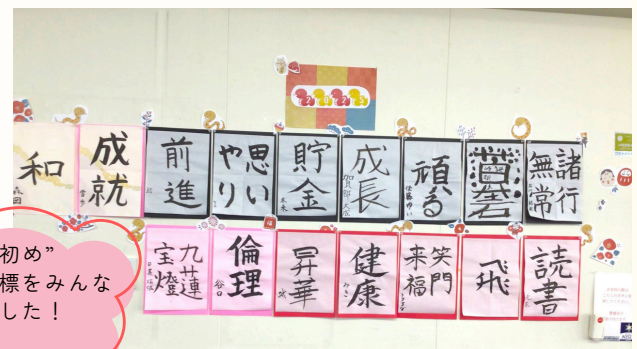 和
森田
成就
前進
思い
やり
貯金
成長
頑る
佐藤ゆい
諸行
無常
九蓮
宝燈
倫理
谷口
昇華
健康
笑門
来福
飛
読書
初め”
標をみんな
した！